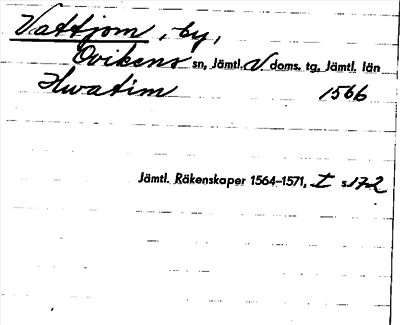 Vattjom, by,
Ovikens sn, Jämtl. V. doms. tg, Jämtl. län
Hwatim 1566
Jämtl. Räkenskaper 1564–1571, I s 172